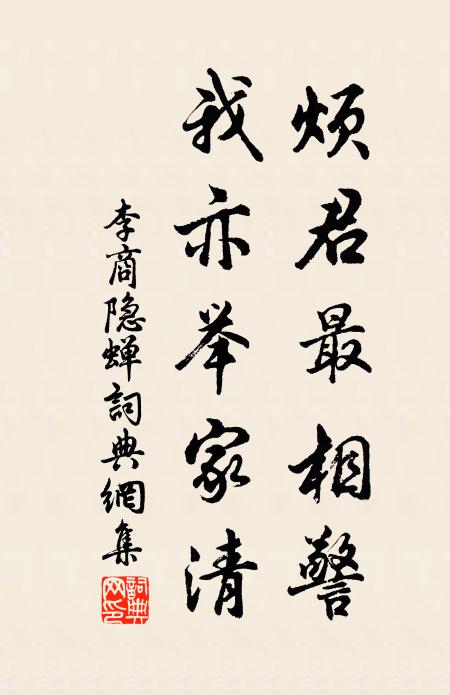 烦君最相警
我亦举家清
李商隐蝉詞典網集
詞典网印